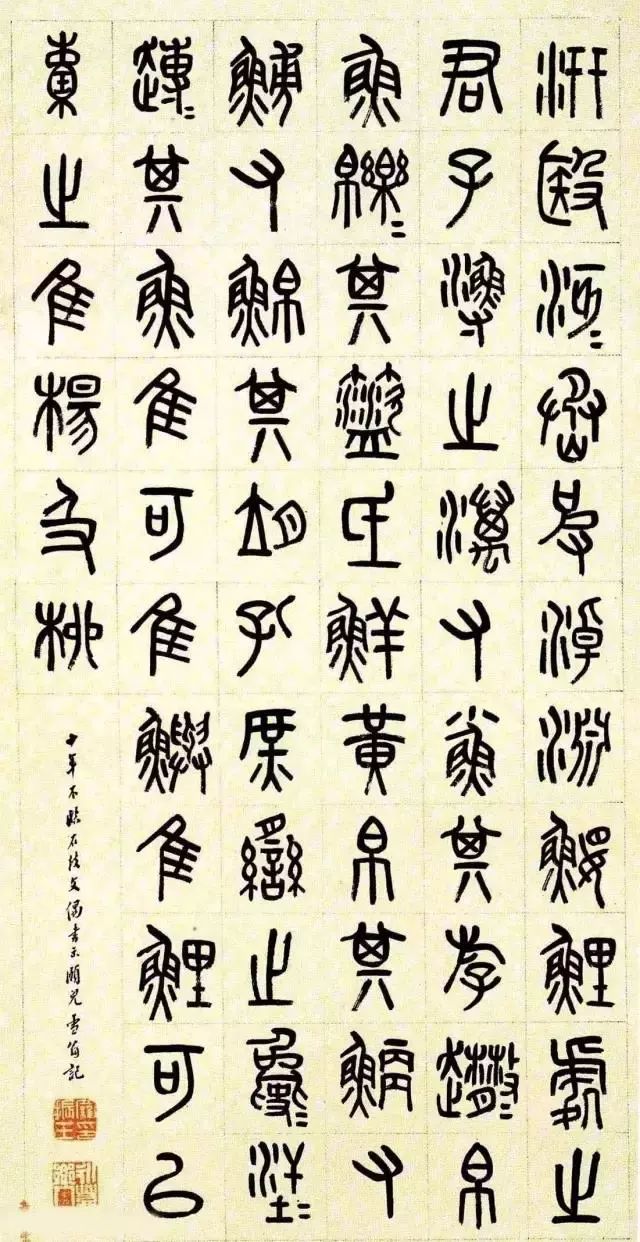 汧殹沔=烝彼淖淵鰋鯉處之
君子漁之澫又小魚其斿趣=帛
魚皪=其盜氐鮮黃帛其鯾又
鰟又鮊其朔孔庶臠之夐=汗=
趡=其魚隹可隹鱮隹鯉可以
橐之隹楊及柳
十年不臨石鼓文偶書示頤兒雪翁記